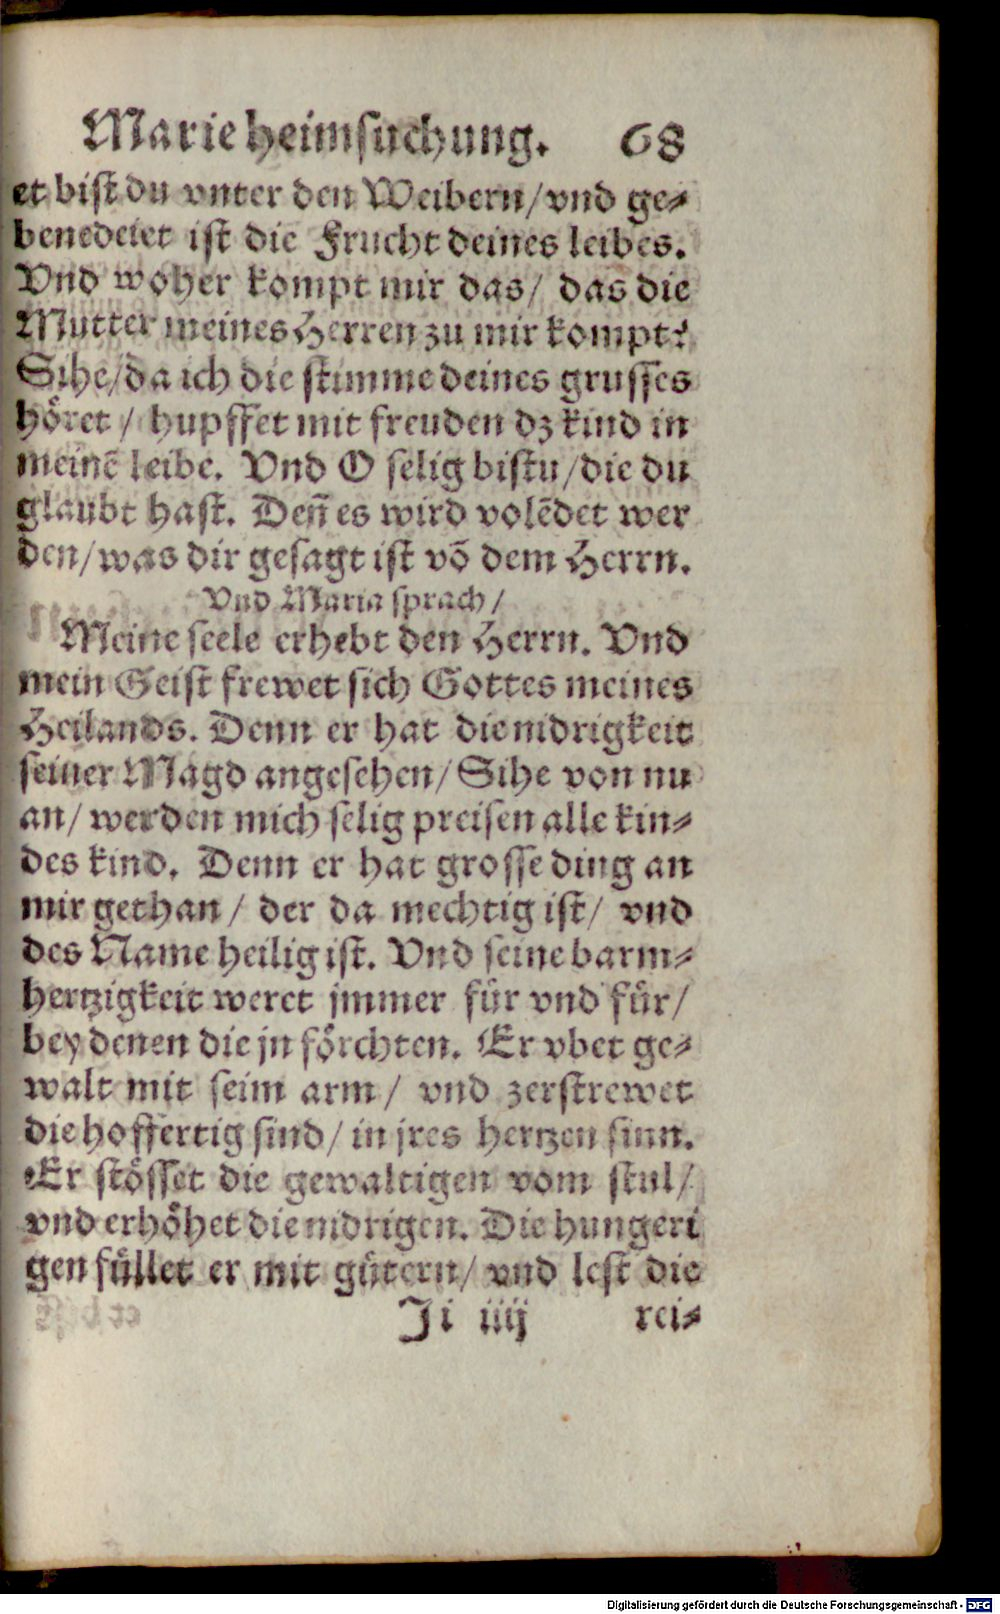 Marie heimsuchung. 68
et bist du vnter den Weibern/vnd ge-
benedeiet ist die Frucht deines leibes.
Vnd woher kompt mir das/ das die
Mutter meines Herren zu mir kompt?
Sihe/da ich die stimme deines grusses
höret/ hupffet mit freuden dz kind in
meinē leibe. Vnd O selig bistu/die du
glaubt hast. Deñ es wird volēdet wer
den/was dir gesagt ist vō dem Herrn.
Vnd Maria sprach/
Meine seele erhebt den Herrn. Vnd
mein Geist frewet sich Gottes meines
Heilands. Denn er hat die nidrigkeit
seiner Magd angesehen/Sihe von nu
an/ werden mich selig preisen alle kin-
des kind. Denn er hat grosse ding an
mir gethan/ der da mechtig ist/ vnd
des Name heilig ist. Vnd seine barm-
hertzigkeit weret jmmer für vnd für/
bey denen die jn förchten. Er vbet ge-
walt mit seim arm/ vnd zerstrewet
die hoffertig sind/ in jres hertzen sinn.
Er stösset die gewaltigen vom stul/
vnd erhöhet die nidrigen. Die hungeri
gen füllet er mit gütern/ vnd lest die
Ji iiij rei-
Digitalisierung gefördert durch die Deutsche Forschungsgemeinschaft - DFG